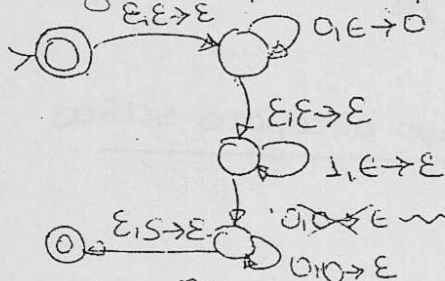 ε,ε→ε 0,ε→0
ε,ε→ε
1,ε→ε
ε,S→ε 0,0→ε
0,0→ε